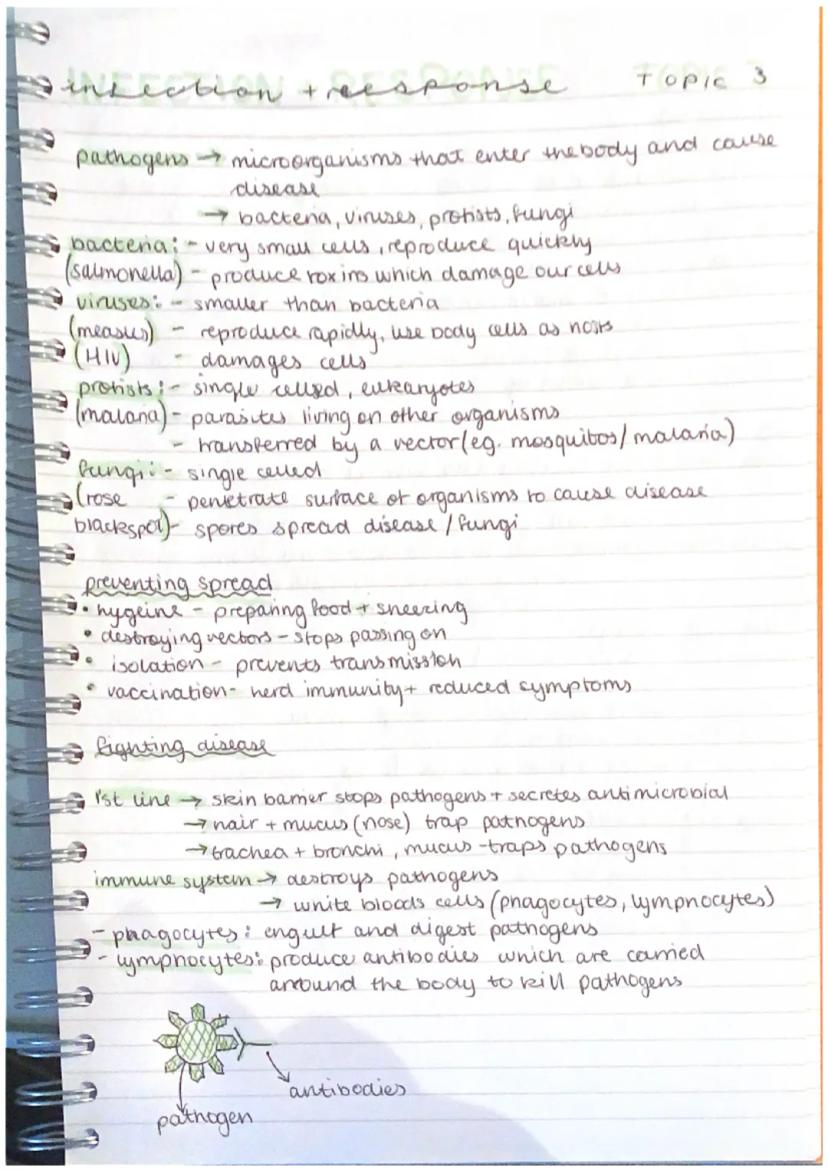 infection + response Topic 3
pathogens → microorganisms that enter the body and cause
disease
→ bacteria, viruses, protists, fungi
bacteria: - very small cells, reproduce quickly
(salmonella) - produce toxins which damage our cells
viruses: - smaller than bacteria
(measles) - reproduce rapidly, use body cells as hosts
(HIV) - damages cells
protists: - single celled, eukaryotes
(malaria) - parasites living on other organisms
- transferred by a vector (eg. mosquitos/malaria)
fungi: - single celled
(rose - penetrate surface of organisms to cause disease
blackspot) - spores spread disease / fungi
preventing spread
• hygeine - preparing food + sneezing
• destroying vectors - stops passing on
• isolation - prevents transmission
• vaccination - herd immunity + reduced symptoms
fighting disease
1'st line → skin barrier stops pathogens + secretes antimicrobial
→ hair + mucus (nose) trap pathogens
→ trachea + bronchi, mucus - traps pathogens
immune system → destroys pathogens
→ white bloods cells (phagocytes, lymphocytes)
- phagocytes: engulf and digest pathogens
- lymphocytes: produce antibodies which are carried
around the body to kill pathogens
antibodies
pathogen